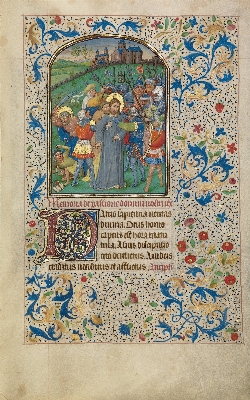 Memoria de passione domini nostri
Patris sapientia veritas
divina. Deus homo
captus est hora matu
tina. A suis discipulis
cito derelictus. A iudeis
traditus venditus et afflictus.